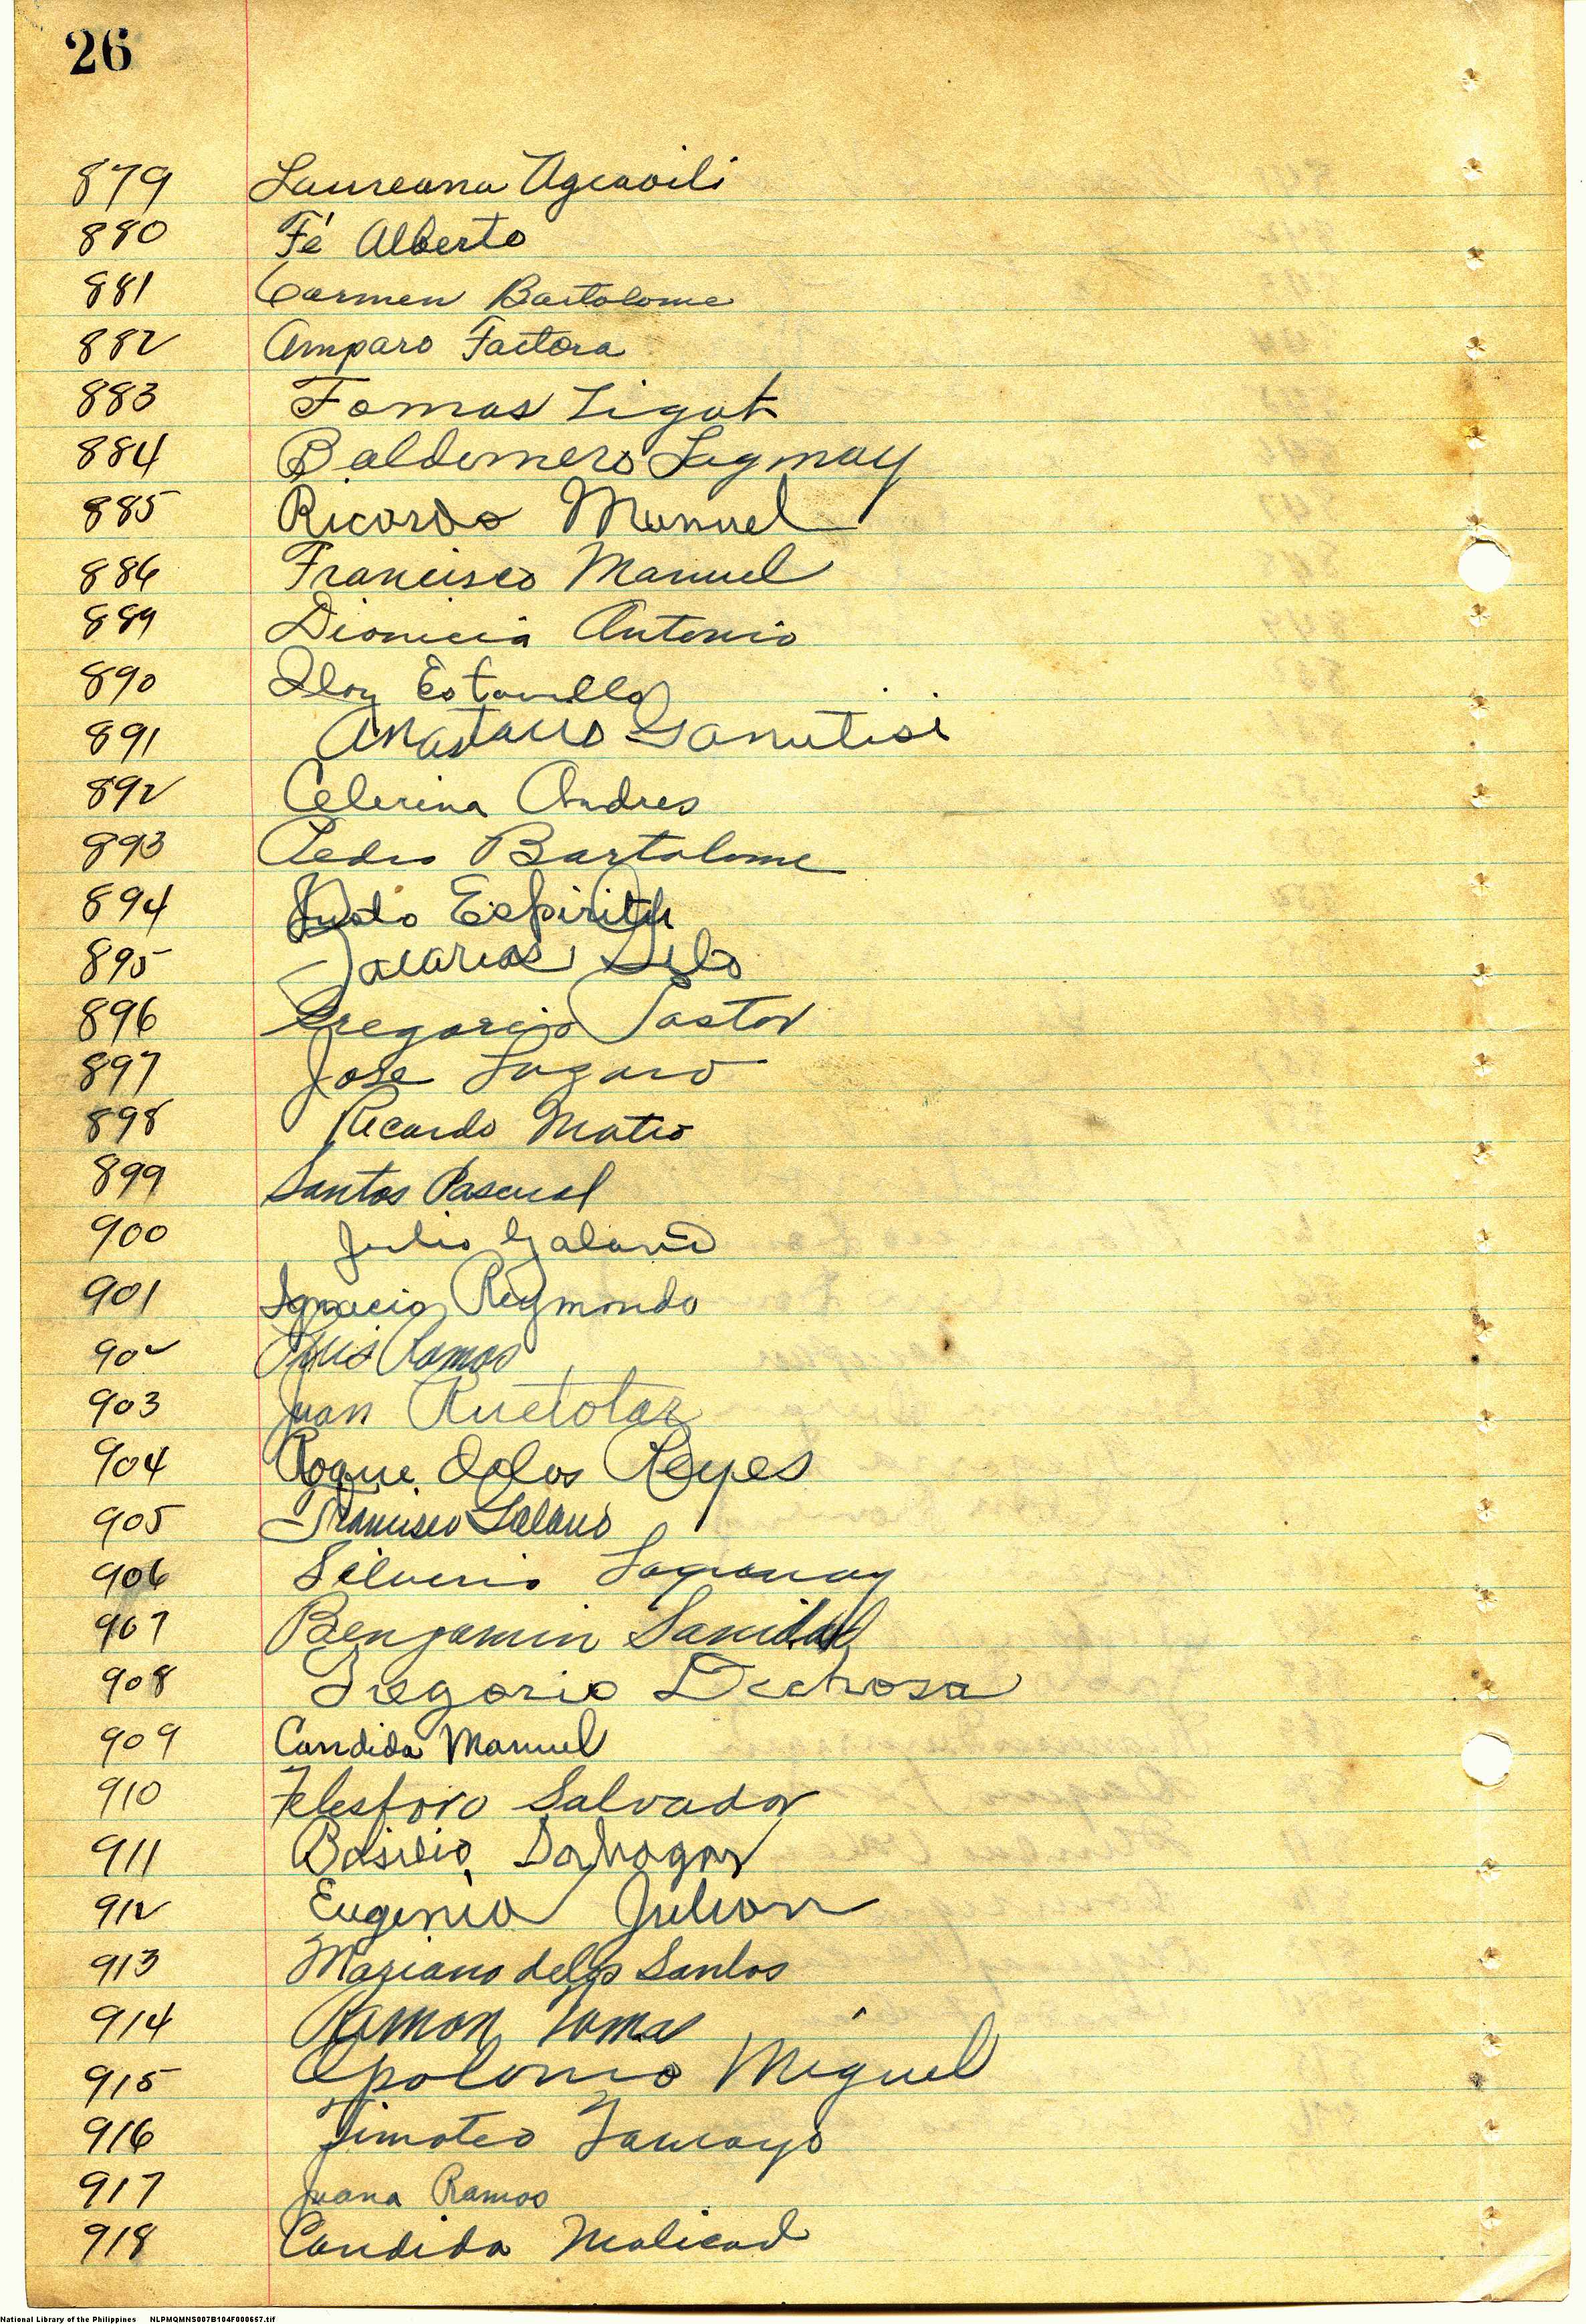 26
879 Laureana Agcaoili
880 Fé Alberto
881 Carmen Bartolome
882 Amparo Factora
883 Tomas Ligot
884 Baldomero Lagmay
885 Ricardo Manuel
886 Francisco Manuel
889 Dionicia Antonio
890 Eloy Estavillo
891 Anastacio Ganutisi
892 Celerina Andres
893 Pedro Bartolome
894 Justo Espiritu
895 Zacarias
896 Gregorio Pastor
897 Jose Lazaro
898 Ricardo Mateo
899 Santos Pascual
900 Julio Galano
901 Ignacio Reymundo
902 Luis Ramos
903 Juan
904 Roque delos Reyes
905 Francisco
906 Silverio Lagmay
907 Benjamin Sanidad
908 Gregorio Dechosa
909 Candida Manuel
910 Telesforo Salvador
911 Basilio
912 Eugenia Julian
913 Mariano delos Santos
914 Ramon Tomas
915 Apolonio Miguel
916 Timoteo Tamayo
917 Juana Ramos
918 Candida Malicad
National Library of the Philippines NLPMQMNS007B104F000657.tif